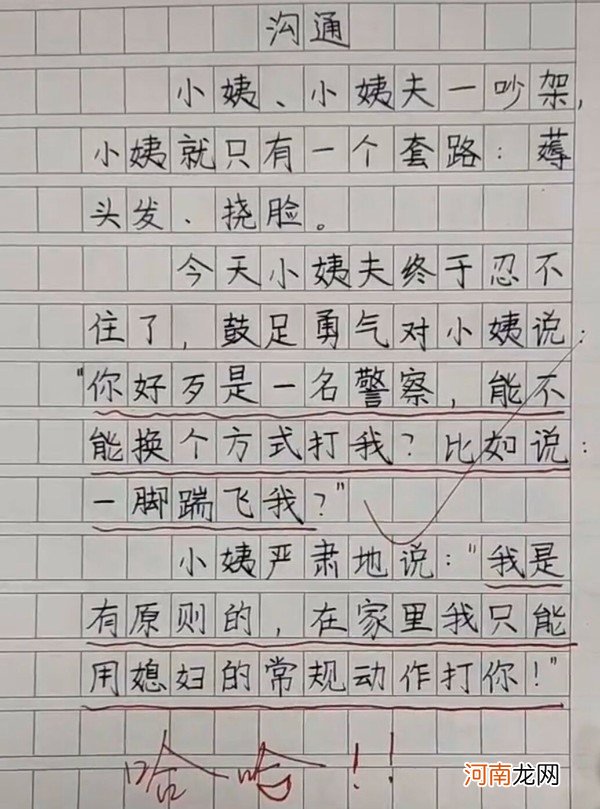 沟通
小姨、小姨夫一吵架,
小姨就只有一个套路:薅
头发、挠脸。
今天小姨夫终于忍不
住了,鼓足勇气对小姨说:
"你好歹是一名警察,能不
能换个方式打我?比如说:
一脚踹飞我?"
小姨严肃地说:"我是
有原则的,在家里我只能
用媳妇的常规动作打你!"
哈哈!!
河南龙网